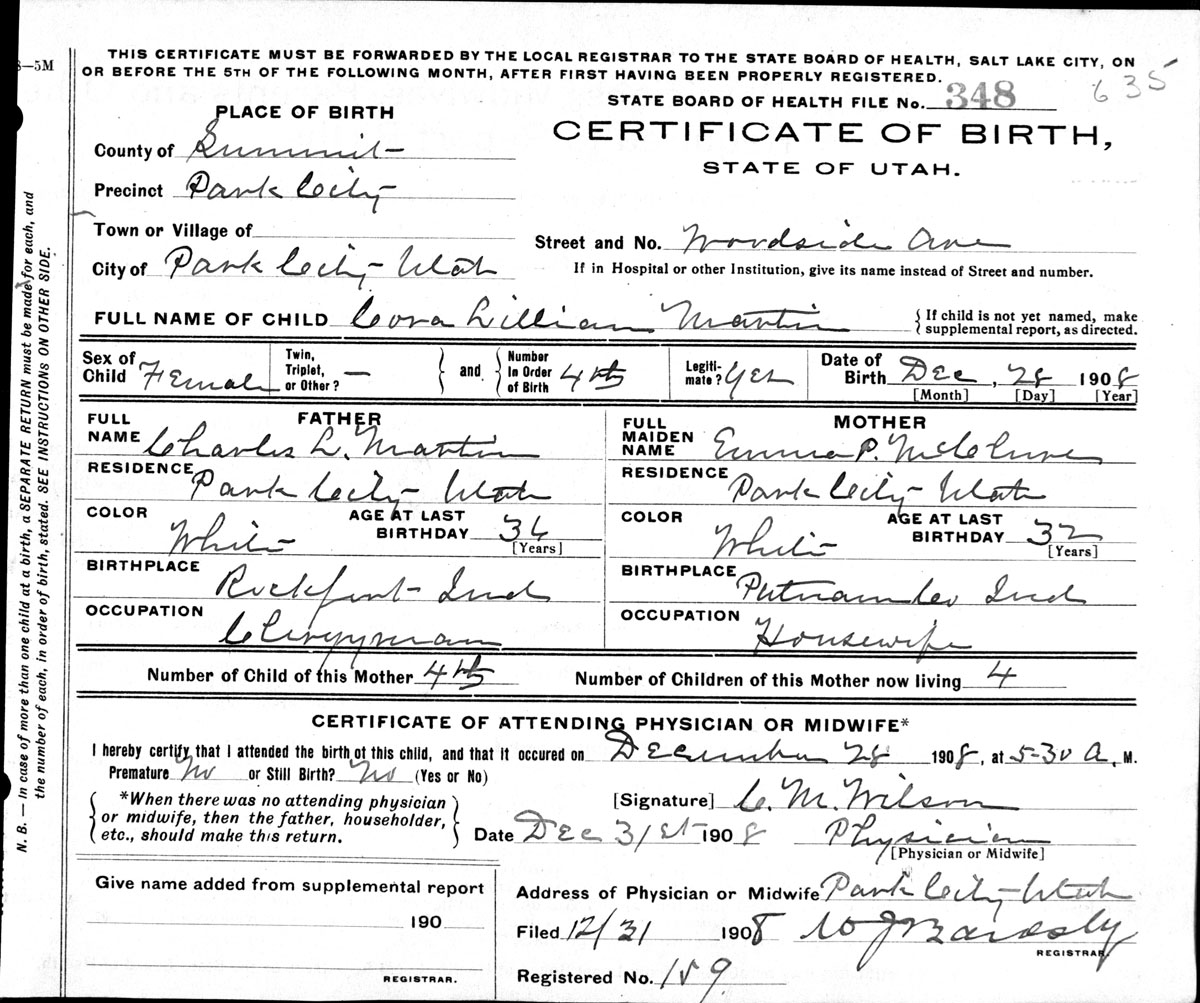 8—5M
THIS CERTIFICATE MUST BE FORWARDED BY THE LOCAL REGISTRAR TO THE STATE BOARD OF HEALTH, SALT LAKE CITY, ON
OR BEFORE THE 5TH OF THE FOLLOWING MONTH, AFTER FIRST HAVING BEEN PROPERLY REGISTERED.
635
STATE BOARD OF HEALTH FILE No. 348
PLACE OF BIRTH
CERTIFICATE OF BIRTH,
STATE OF UTAH.
County of Summit
Precinct Park City
Town or Village of
Street and No. Woodside Ave
City of Park City Utah
If in Hospital or other Institution, give its name instead of Street and number.
FULL NAME OF CHILD Cora Lillian Martin { If child is not yet named, make
supplemental report, as directed.
Sex of Child Female
Twin, Triplet, or Other? — } and { Number In Order of Birth 4th
Legiti-mate? Yes
Date of Birth Dec, 28 1908
[Month] [Day] [Year]
FATHER
FULL NAME Charles L. Martin
MOTHER
FULL MAIDEN NAME Emma P. McClure
RESIDENCE Park City Utah
RESIDENCE Park City Utah
COLOR White AGE AT LAST BIRTHDAY 36 [Years]
COLOR White AGE AT LAST BIRTHDAY 32 [Years]
BIRTHPLACE Rockport Ind
BIRTHPLACE Putnam Co Ind
OCCUPATION Clergyman
OCCUPATION Housewife
Number of Child of this Mother 4th Number of Children of this Mother now living 4
CERTIFICATE OF ATTENDING PHYSICIAN OR MIDWIFE*
I hereby certify that I attended the birth of this child, and that it occured on December 28 1908, at 5-30 A. M.
Premature No or Still Birth? No (Yes or No)
{ *When there was no attending physician
or midwife, then the father, householder,
etc., should make this return. }
[Signature] C. M. Wilson
Date Dec 31st 1908 Physician
[Physician or Midwife]
Give name added from supplemental report
190
REGISTRAR.
Address of Physician or Midwife Park City Utah
Filed 12/31 1908
REGISTRAR.
Registered No. 159
N. B. — In case of more than one child at a birth, a SEPARATE RETURN must be made for each, and
the number of each, in order of birth, stated. SEE INSTRUCTIONS ON OTHER SIDE.